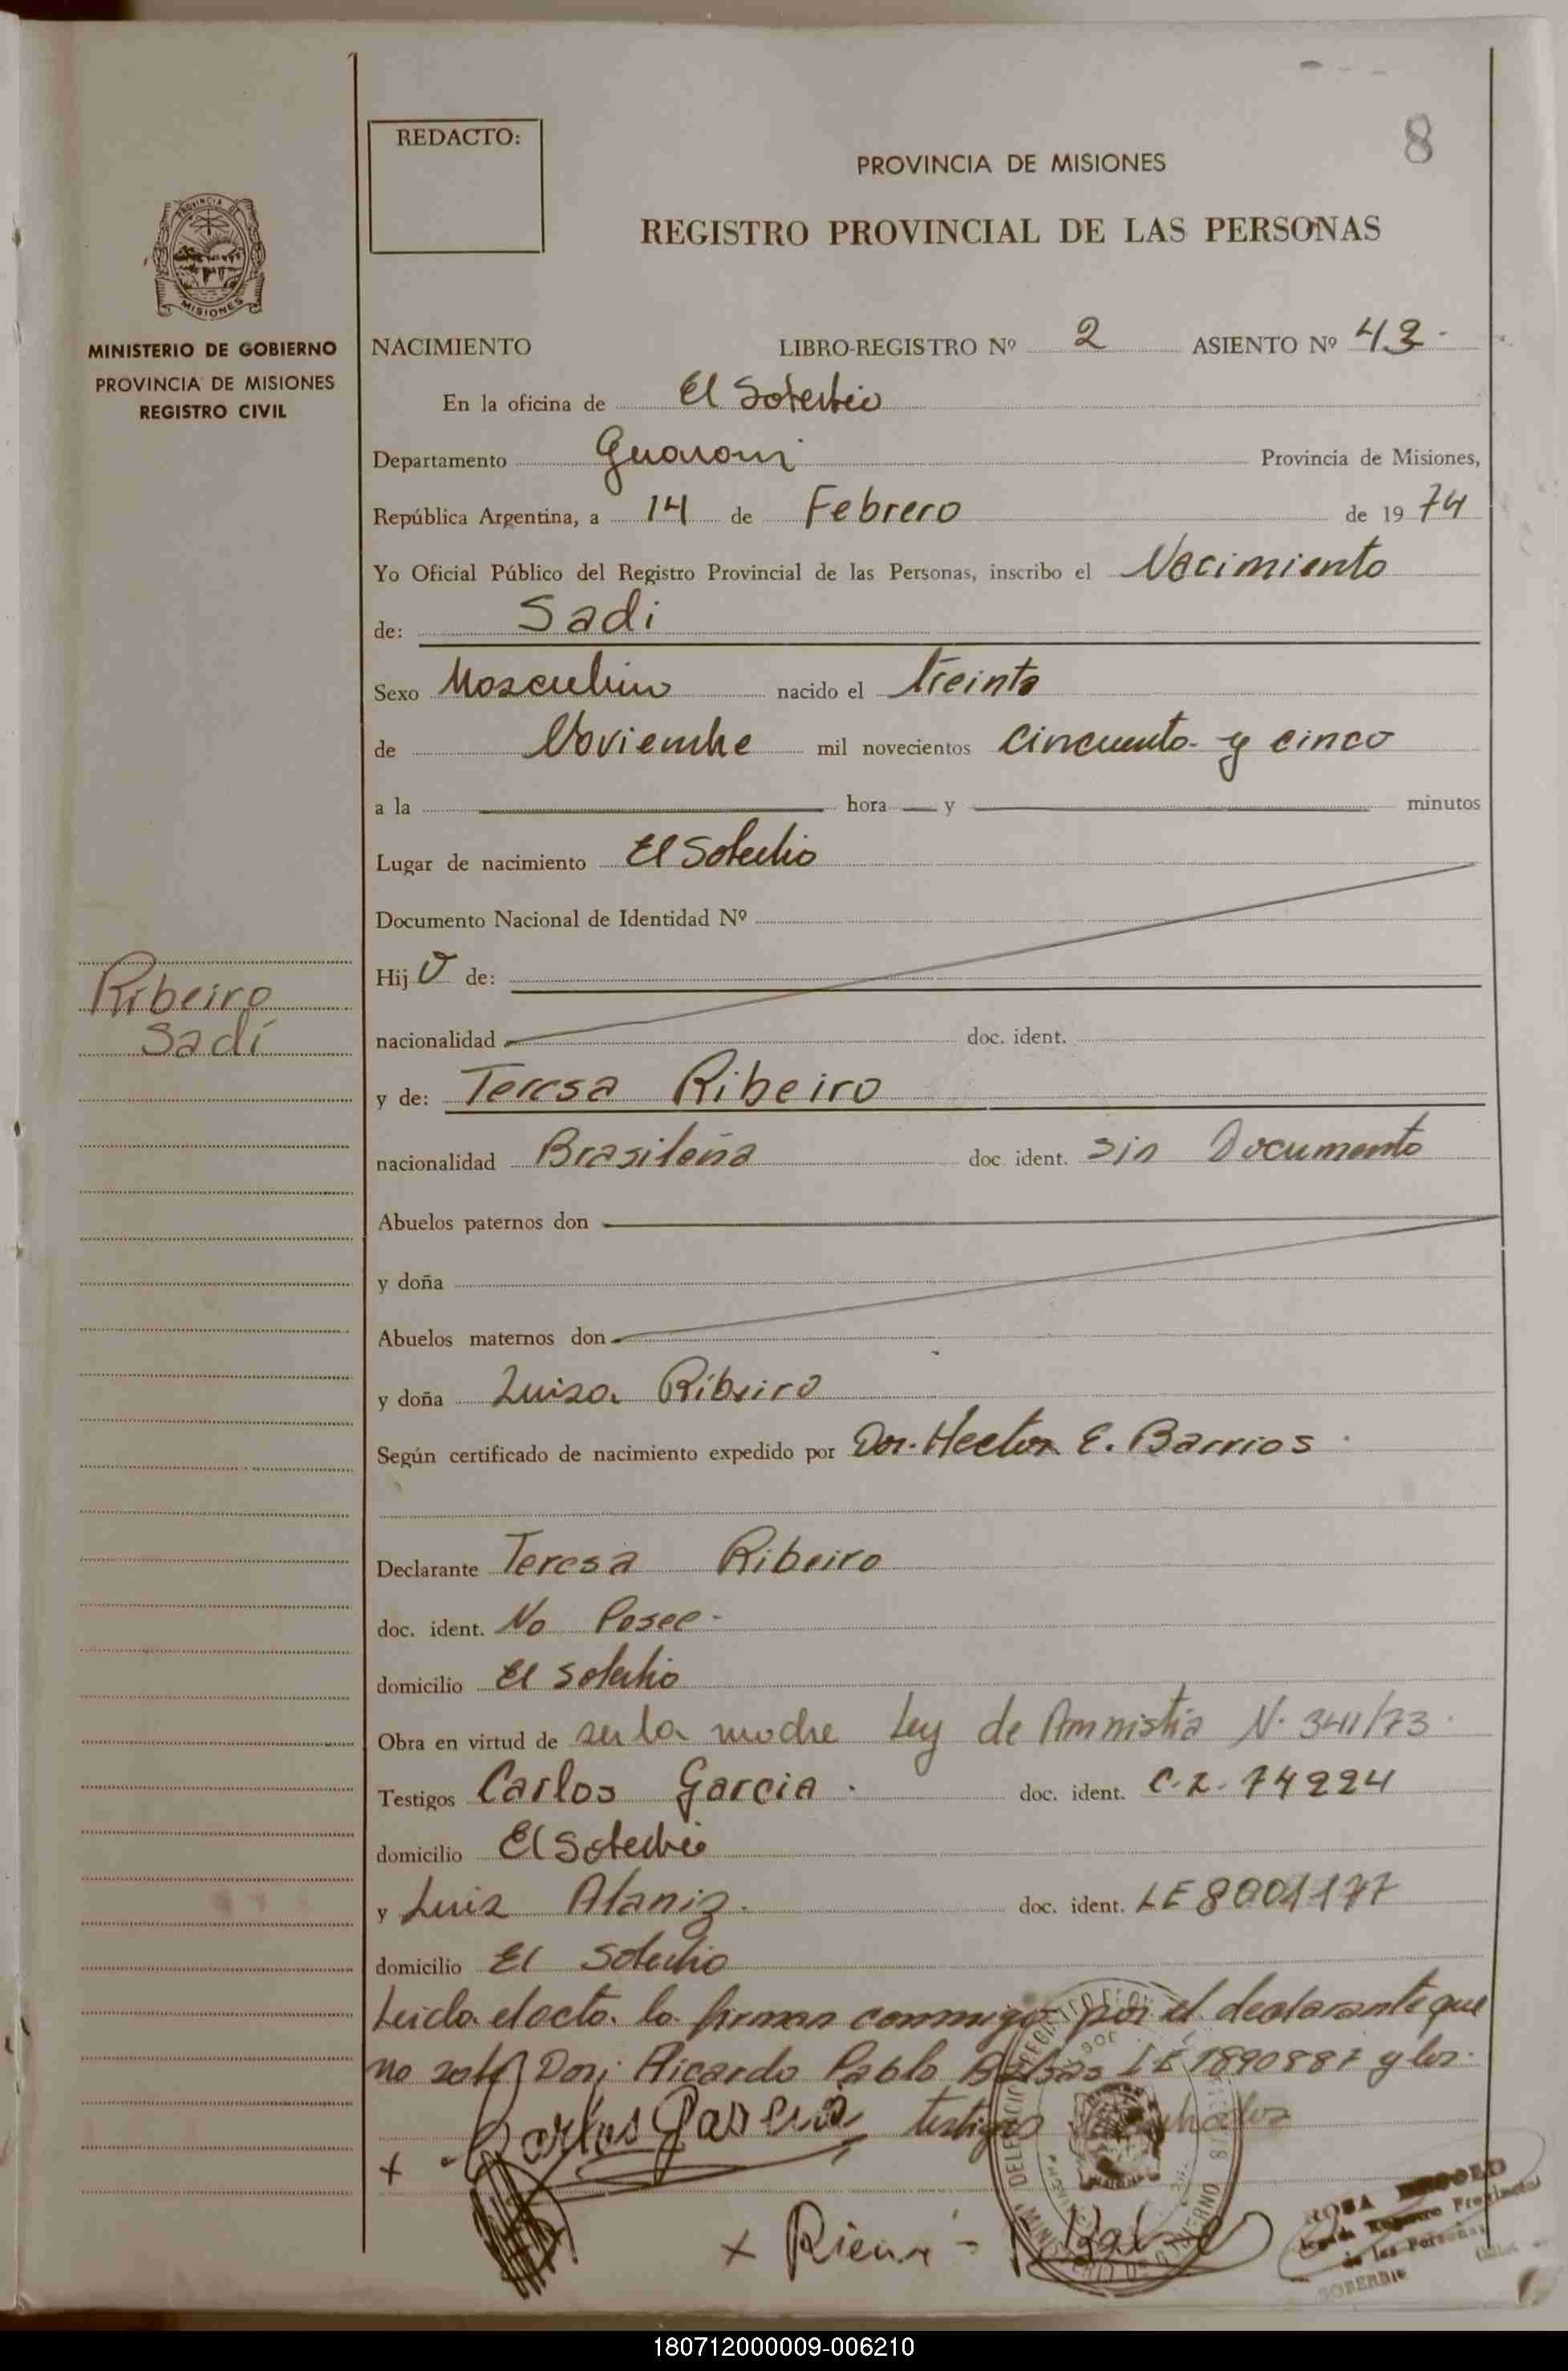 8
REDACTO:
PROVINCIA DE MISIONES
REGISTRO PROVINCIAL DE LAS PERSONAS
PROVINCIA DE
MISIONES
MINISTERIO DE GOBIERNO
PROVINCIA DE MISIONES
REGISTRO CIVIL
NACIMIENTO LIBRO-REGISTRO Nº 2 ASIENTO Nº 43
En la oficina de El Soberbio
Departamento Guarani Provincia de Misiones,
República Argentina, a 14 de Febrero de 1974
Yo Oficial Público del Registro Provincial de las Personas, inscribo el Nacimiento
de: Sadi
Sexo Masculino nacido el treinta
de Noviembre mil novecientos cincuenta y cinco
a la hora y minutos
Lugar de nacimiento El Soberbio
Documento Nacional de Identidad Nº
Hijo de:
Ribeiro
Sadi
nacionalidad doc. ident.
y de: Teresa Ribeiro
nacionalidad Brasileña doc. ident. Sin Documento
Abuelos paternos don
y doña
Abuelos maternos don
y doña Luisa Ribeiro
Según certificado de nacimiento expedido por Dor. Hector E. Barrios
Declarante Teresa Ribeiro
doc. ident. No Posee-
domicilio El Soberbio
Obra en virtud de ser la madre Ley de Amnistia N. 341/73
Testigos Carlos Garcia. doc. ident. C.I. 74224
domicilio El Soberbio
y Luis Alaniz. doc. ident. LE 8001177
domicilio El Soberbio
Leida el acta la firman conmigo por el declarante que
no sabe Don: Ricardo Pablo LE 1890887 y los
Carlos Garcia testigos
ROSA
Registro Provincial
de las Personas
SOBERBIO
180712000009-006210